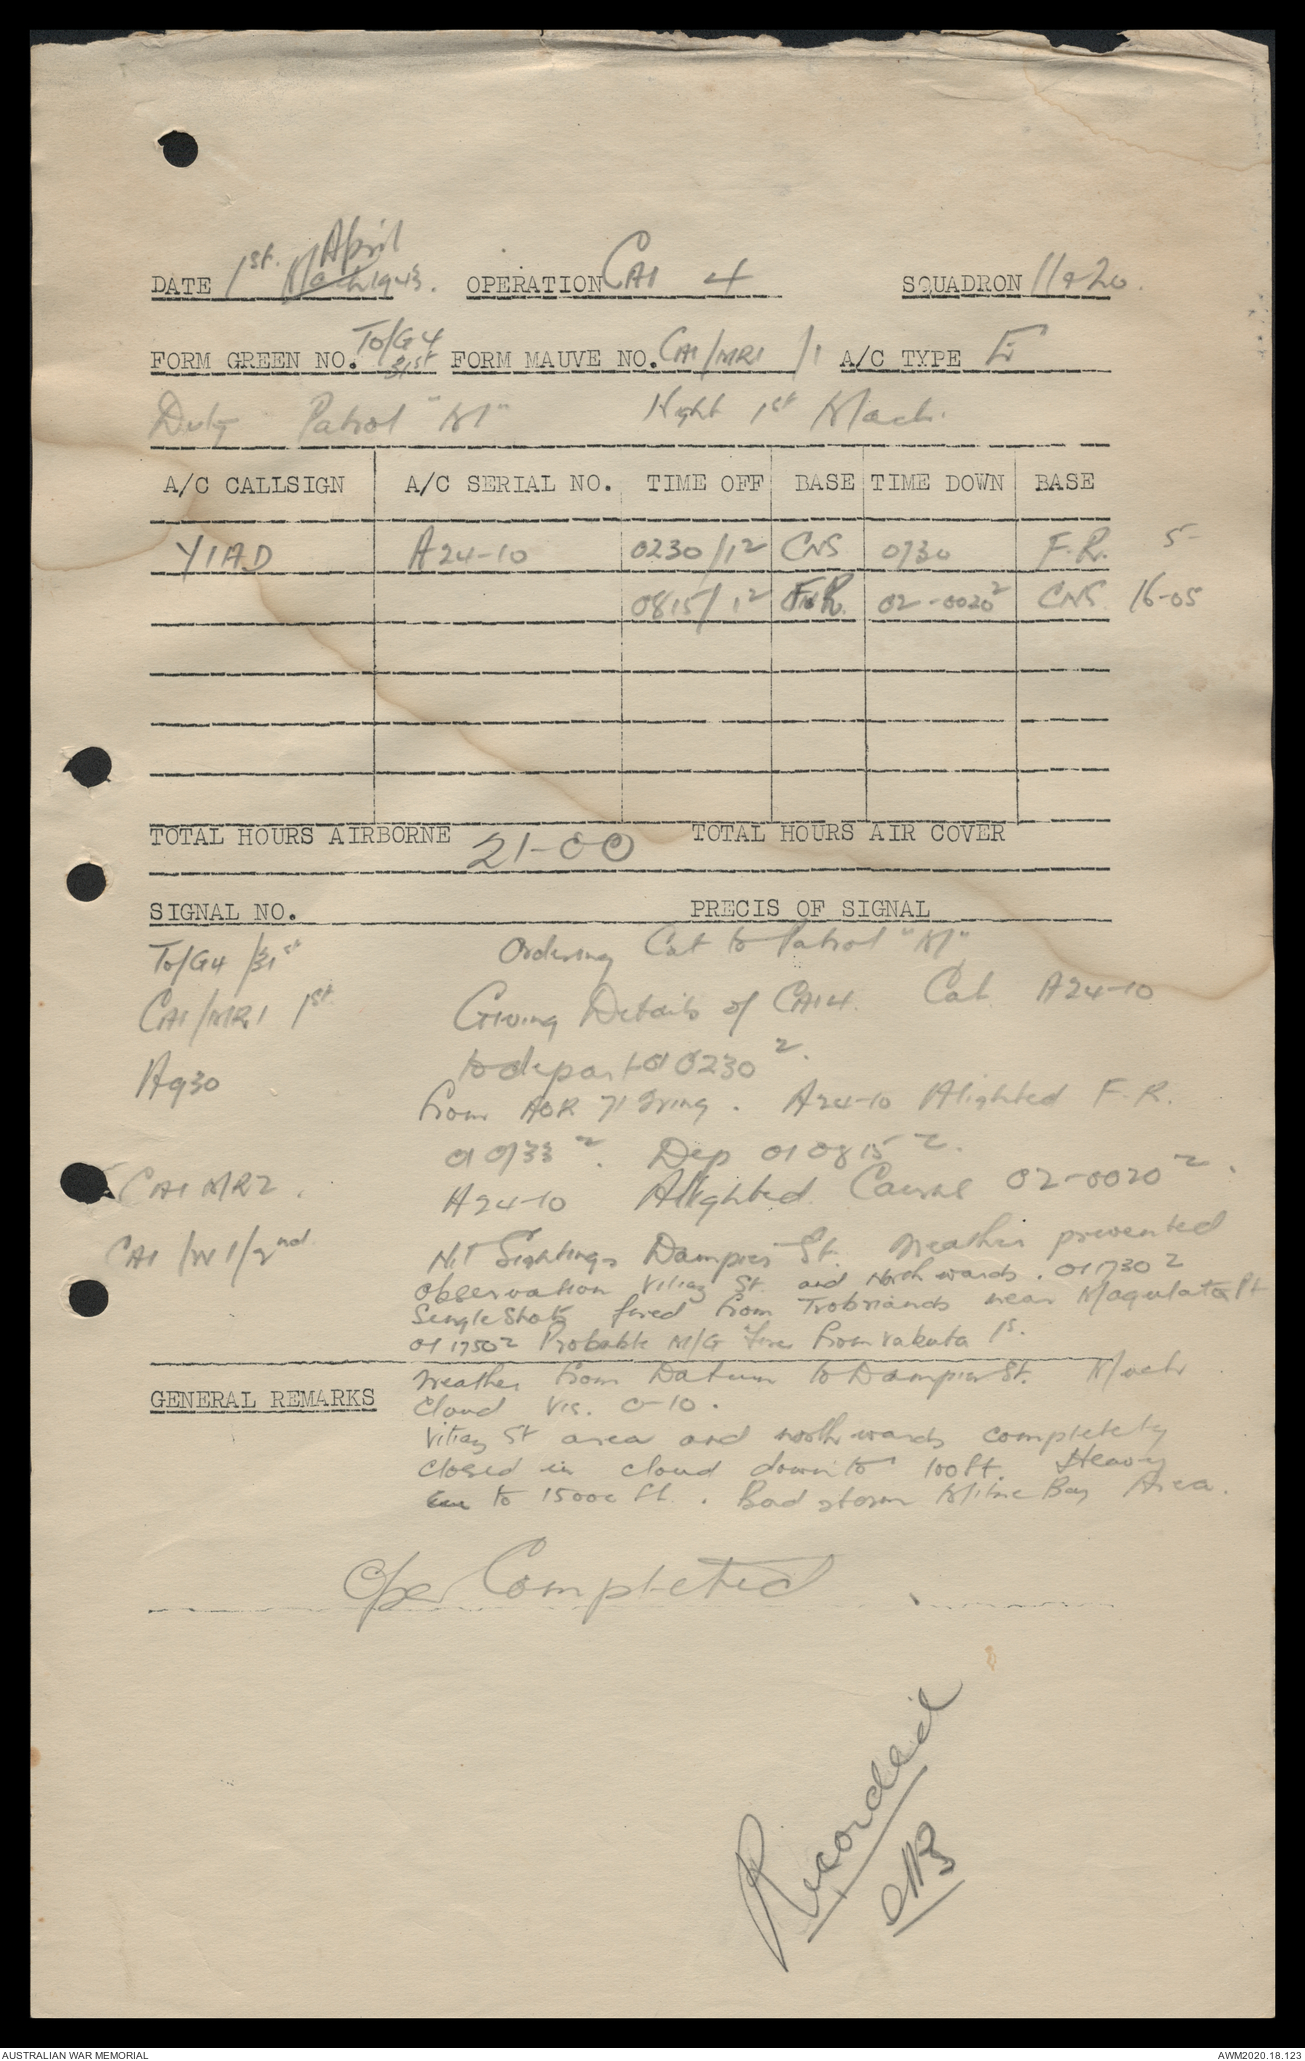 April
DATE 1st. March 1943. OPERATION CAI 4 SQUADRON 11 & 20.
FORM GREEN NO. To/G4 31st FORM MAUVE NO. CAI/MR1 /1 A/C TYPE E
Duty Patrol "M" Night 1st March.
A/C CALLSIGN A/C SERIAL NO. TIME OFF BASE TIME DOWN BASE
Y1AD A24-10 0230/1Z CNS 0730 F.R. 5-
0815/1Z F.R. 02-0020Z CNS 16-05
TOTAL HOURS AIRBORNE 21-00 TOTAL HOURS AIR COVER
SIGNAL NO. PRECIS OF SIGNAL
To/G4 /31st Ordering Cat to Patrol "M"
CAI/MR1 1st. Giving Details of CAI4. Cat A24-10
to depart 010230Z.
A930 from AOR 71 Wing. A24-10 Alighted F.R.
010733Z. Dep 010815Z.
CAI MR2. A24-10 Alighted Cairns 02-0020Z.
CAI /W1/2nd Nil Sightings Dampier St. Weather prevented
observation Vitiaz St. and Northwards. 011730Z
Single Shots fired from Trobriands near Magulata Pt
011750Z Probable M/G Fire from Vakuta Is.
GENERAL REMARKS Weather from Datum to Dampier St. Much
Cloud Vis. 0-10.
Vitiaz St area and northwards completely
closed in cloud down to 100ft. Heavy
to 15000 ft. Bad storm Milne Bay Area.
Oper Completed
Recorded